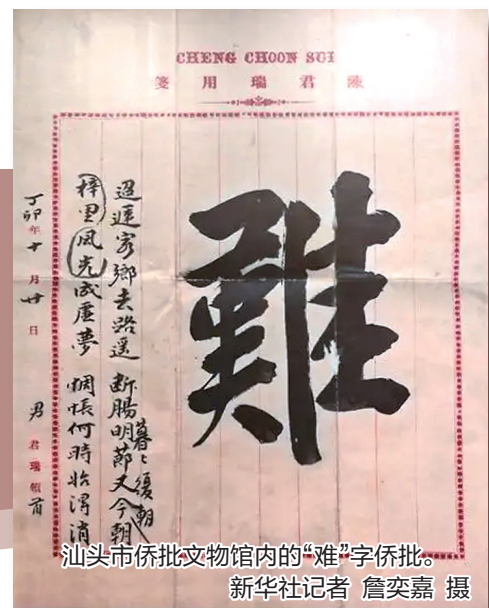 CHENG CHOON SUI
陳君瑞用箋
難
迢遞客鄉去路遥 断腸明節又今朝
暮々復朝
梓里風光成虛夢 惆悵何時始得消
丁卯年十月廿日 男君瑞頓首
汕头市侨批文物馆内的“难”字侨批。
新华社记者 詹奕嘉 摄